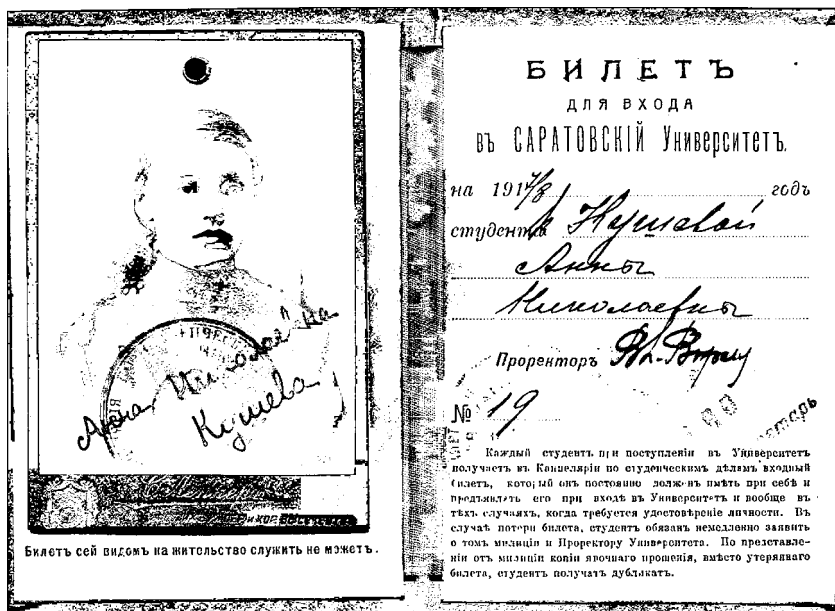 Анна Николаевна
Кушева
Билетъ сей видомъ на жительство служить не можетъ.
БИЛЕТЪ
ДЛЯ ВХОДА
въ САРАТОВСКІЙ Университетъ.
на 1917/8 годъ
студентк Кушевой
Анны
Николаевны
Проректоръ
№ 19
Каждый студентъ при поступленіи въ Университетъ
получаетъ въ Канцеляріи по студенческимъ дѣламъ входный
билетъ, который онъ постоянно долженъ имѣть при себѣ и
предъявлять его при входѣ въ Университетъ и вообще въ
тѣхъ случаяхъ, когда требуется удостовѣреніе личности. Въ
случаѣ потери билета, студентъ обязанъ немедленно заявить
о томъ милиціи и Проректору Университета. По представле-
ніи отъ милиціи копіи явочнаго прошенія, вмѣсто утеряннаго
билета, студентъ получатъ дубликатъ.